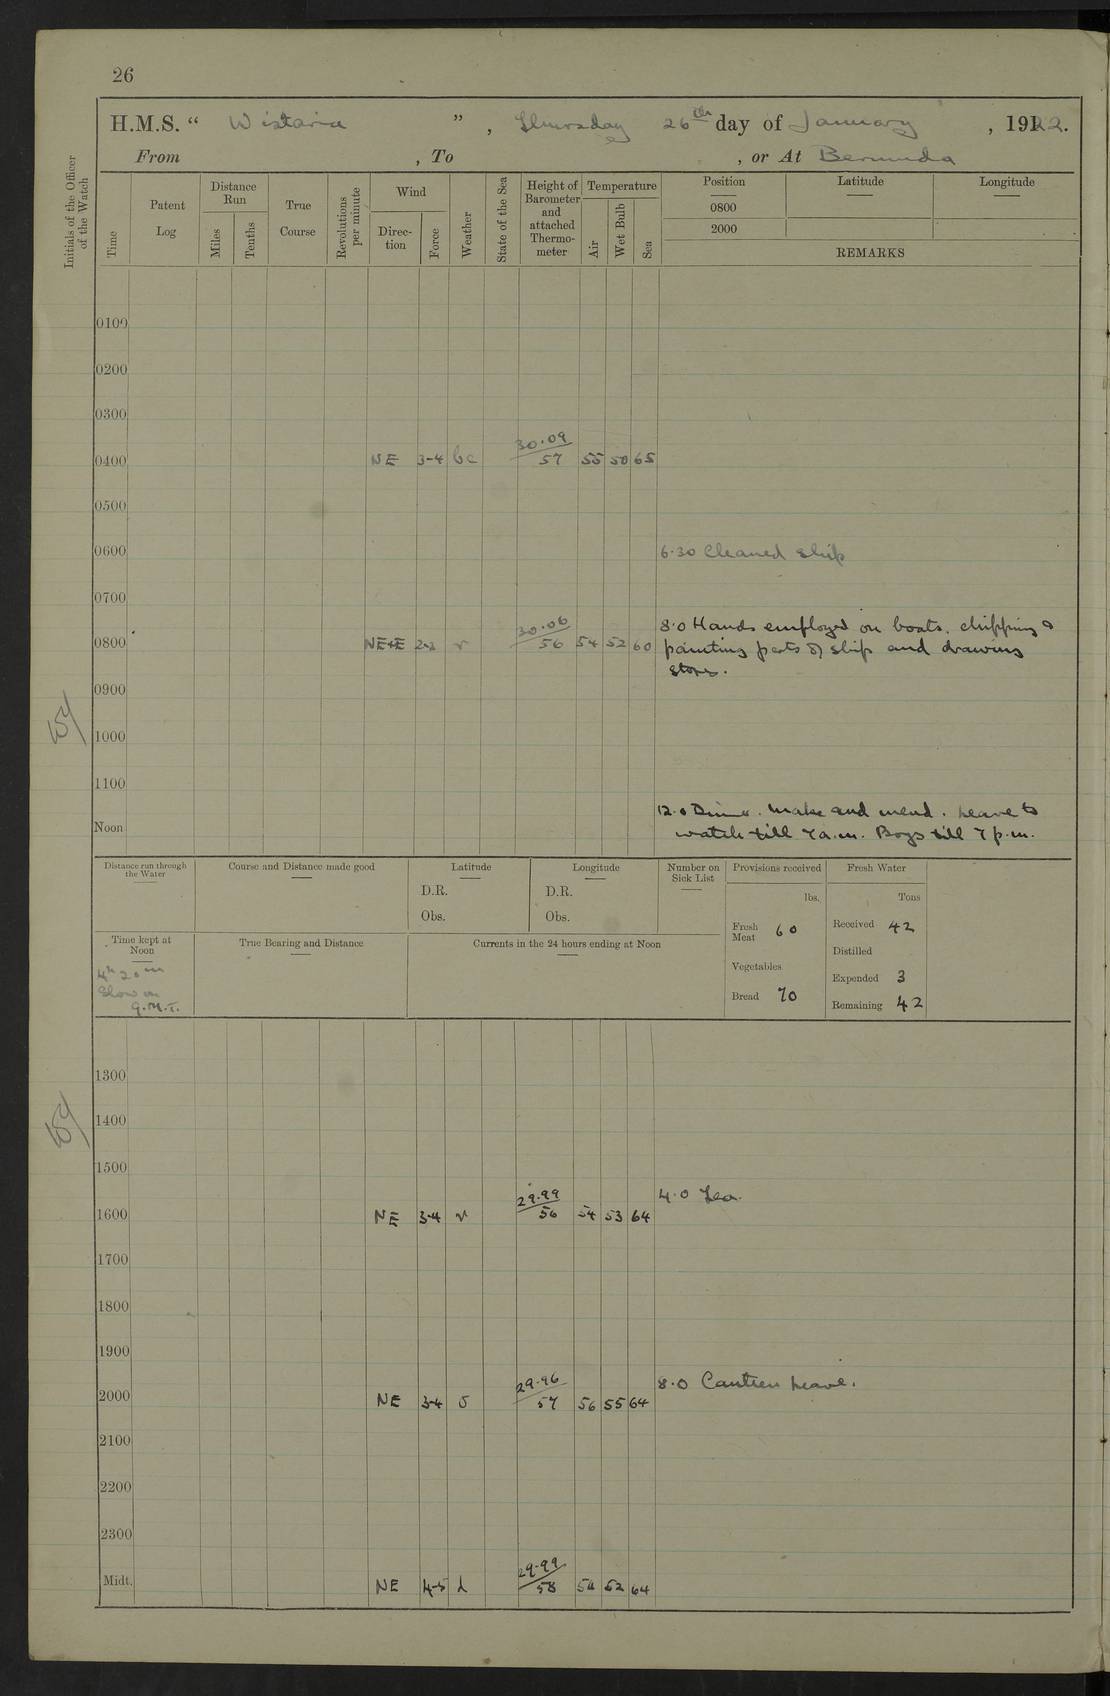 26
H.M.S. “ Wistaria ” , Thursday 26th day of January , 1922.
From , To , or At Bermuda
Initials of the Officer of the Watch
Time
Patent Log
Distance Run
Miles
Tenths
True Course
Revolutions per minute
Wind
Direc-tion
Force
Weather
State of the Sea
Height of Barometer and attached Thermo-meter
Temperature
Air
Wet Bulb
Sea
Position Latitude Longitude
0800
2000
REMARKS
0100
0200
0300
30.09
0400 NE 3-4 bc 57 55 50 65
0500
0600 6.30 Cleaned ship
0700
30.06 8.0 Hands employed on boats, chipping &
0800 NE+E 2-3 r 56 54 52 60 painting parts of ship and drawing
stores.
0900
1000
1100
12.0 Dinner. Make and mend. Leave to
Noon watch till 7 a.m. Boys till 7 p.m.
Distance run through the Water
Course and Distance made good
Latitude
D.R.
Obs.
Longitude
D.R.
Obs.
Number on Sick List
Provisions received
lbs.
Fresh Meat 60
Vegetables
Bread 70
Fresh Water
Tons
Received 42
Distilled
Expended 3
Remaining 42
Time kept at Noon
4h 20m
Slow on
G.M.T.
True Bearing and Distance
Currents in the 24 hours ending at Noon
1300
1400
1500
29.99 4.0 Tea.
1600 NE 3-4 r 56 54 53 64
1700
1800
1900
29.96 8.0 Canteen leave.
2000 NE 3-4 o 57 56 55 64
2100
2200
2300
29.99
Midt. NE 4-5 d 58 54 52 64